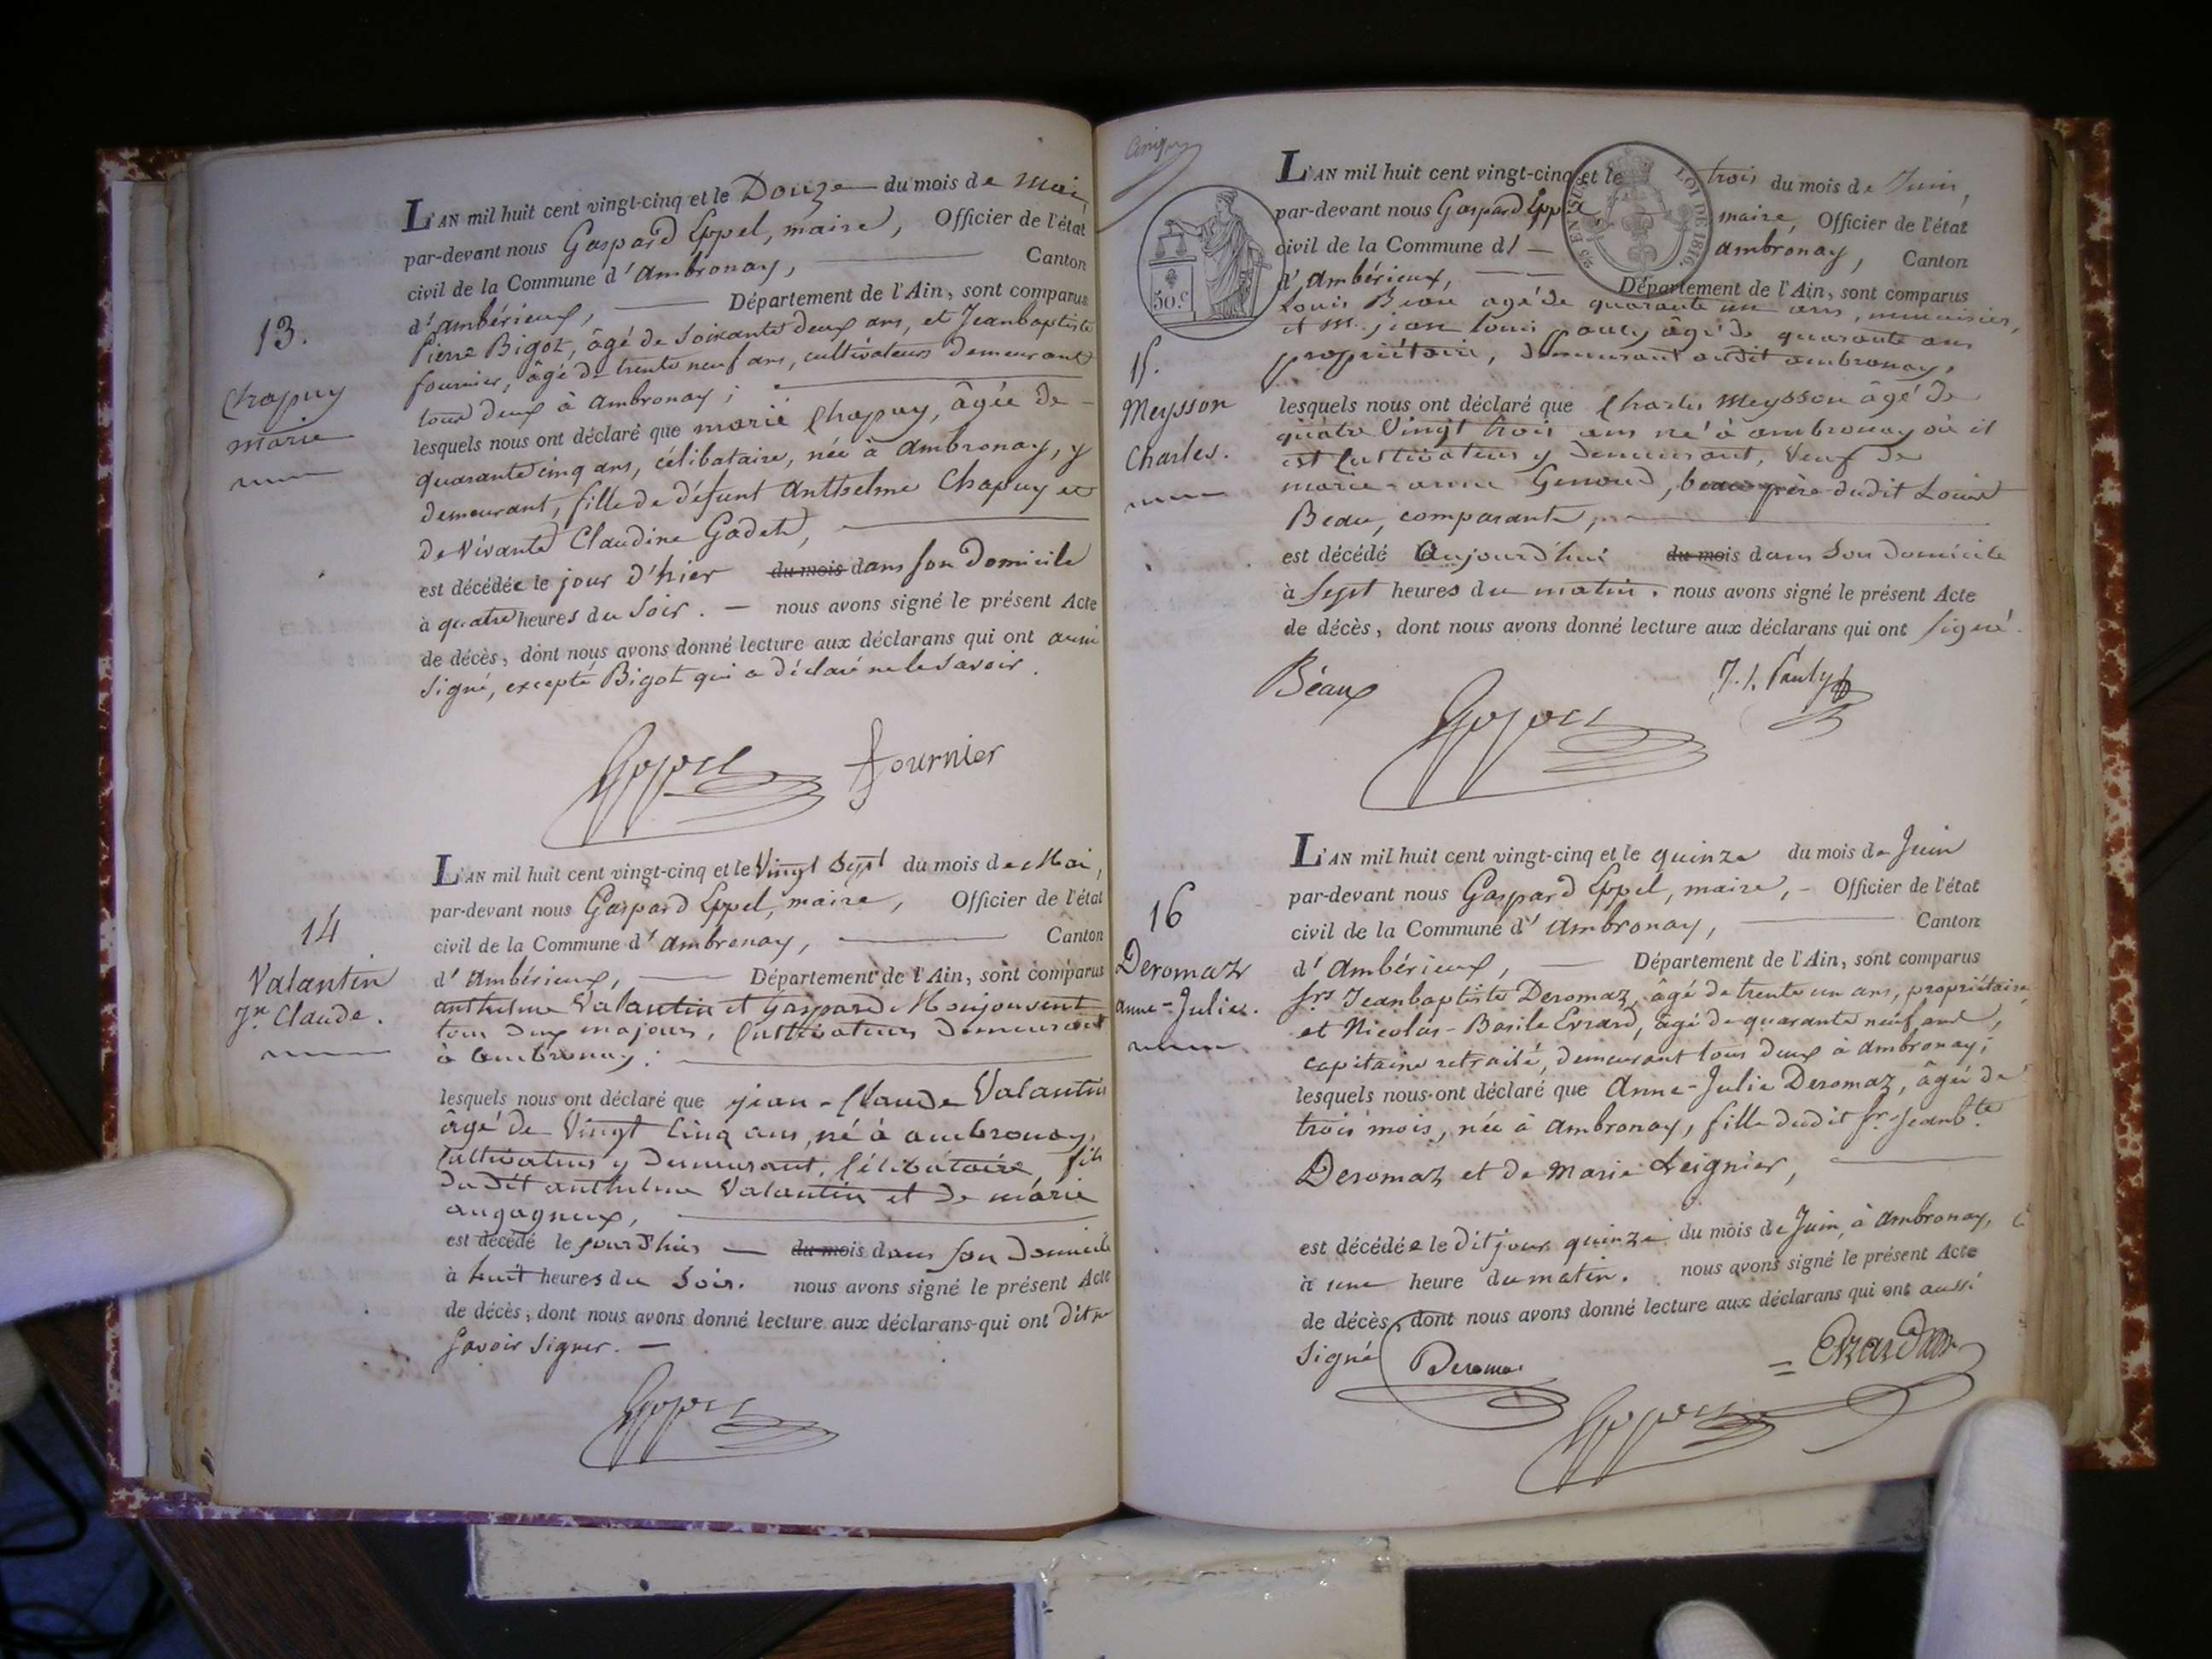 13.
Chapuy
marie
L'AN mil huit cent vingt-cinq et le Douze du mois de Mai,
par-devant nous Gaspard Eppel, maire, Officier de l'état
civil de la Commune d'Ambronay, Canton
d'ambérieux, Département de l'Ain, sont comparus
Pierre Bigot, âgé de soixante deux ans, et Jeanbaptiste
fournier, âgé de trente neuf ans, cultivateurs demeurant
tous deux à ambronay;
lesquels nous ont déclaré que marie Chapuy, âgée de
quarante cinq ans, célibataire, née à Ambronay, y
demeurant, fille de défunt Anthelme Chapuy et
de vivante Claudine Gadet,
est décédée le jour d'hier du mois dans son Domicile
à quatre heures du soir. nous avons signé le présent Acte
de décès, dont nous avons donné lecture aux déclarans qui ont aussi
signé, excepté Bigot qui a déclaré ne le savoir.
Eppel fournier
14
Valantin
Jn. Claude.
L'AN mil huit cent vingt-cinq et le Vingt Sept du mois de Mai,
par-devant nous Gaspard Eppel, maire, Officier de l'état
civil de la Commune d'Ambronay, Canton
d'Ambérieux, Département de l'Ain, sont comparus
anthelme Valantin et Gaspard Monjouvent
tous deux majeurs, Cultivateurs demeurant
à ambronay:
lesquels nous ont déclaré que jean-Claude Valantin
âgé de Vingt Cinq ans, né à ambronay,
Cultivateur y demeurant, Célibataire, fils
dudit anthelme Valantin et de marie
augagneux,
est décédé le jour d'hier du mois dans son Domicile
à huit heures du soir. nous avons signé le présent Acte
de décès, dont nous avons donné lecture aux déclarans qui ont dit ne
savoir signer.
Eppel
50.c
25 EN SUS
LOI DE 1816.
15.
Meysson
Charles.
L'AN mil huit cent vingt-cinq et le trois du mois de Juin,
par-devant nous Gaspard Eppel, maire, Officier de l'état
civil de la Commune d' ambronay, Canton
d'Ambérieux, Département de l'Ain, sont comparus
Louis Beau agé de quarante un ans, menuisier,
et M. jean Louis Pauly agé de quarante ans
propriétaire, demeurant audit ambronay,
lesquels nous ont déclaré que Charles Meysson âgé de
quatre Vingt trois ans né à ambronay où il
est Cultivateur y demeurant, Veuf de
marie-anne Genoud, beau-père dudit Louis
Beau, comparant,
est décédé Aujourd'hui du mois dans Son domicile
à Sept heures du matin. nous avons signé le présent Acte
de décès, dont nous avons donné lecture aux déclarans qui ont signé.
Béaux J. L. Pauly
Eppel
16
Deromaz
anne-Julie.
L'AN mil huit cent vingt-cinq et le quinze du mois de Juin
par-devant nous Gaspard Eppel, maire, Officier de l'état
civil de la Commune d'Ambronay, Canton
d'Ambérieux, Département de l'Ain, sont comparus
srs Jeanbaptiste Deromaz, âgé de trente un ans, propriétaire,
et Nicolas-Basile Evrard, âgé de quarante neuf ans,
capitaine retraité, demeurant tous deux à Ambronay;
lesquels nous ont déclaré que Anne-Julie Deromaz, âgée de
trois mois, née à Ambronay, fille dudit sr. Jeanb.te
Deromaz et de Marie Leignier,
est décédée le dit jour quinze du mois de Juin, à Ambronay,
à une heure du matin. nous avons signé le présent Acte
de décès, dont nous avons donné lecture aux déclarans qui ont aussi
signé Deromaz Evrard
Eppel